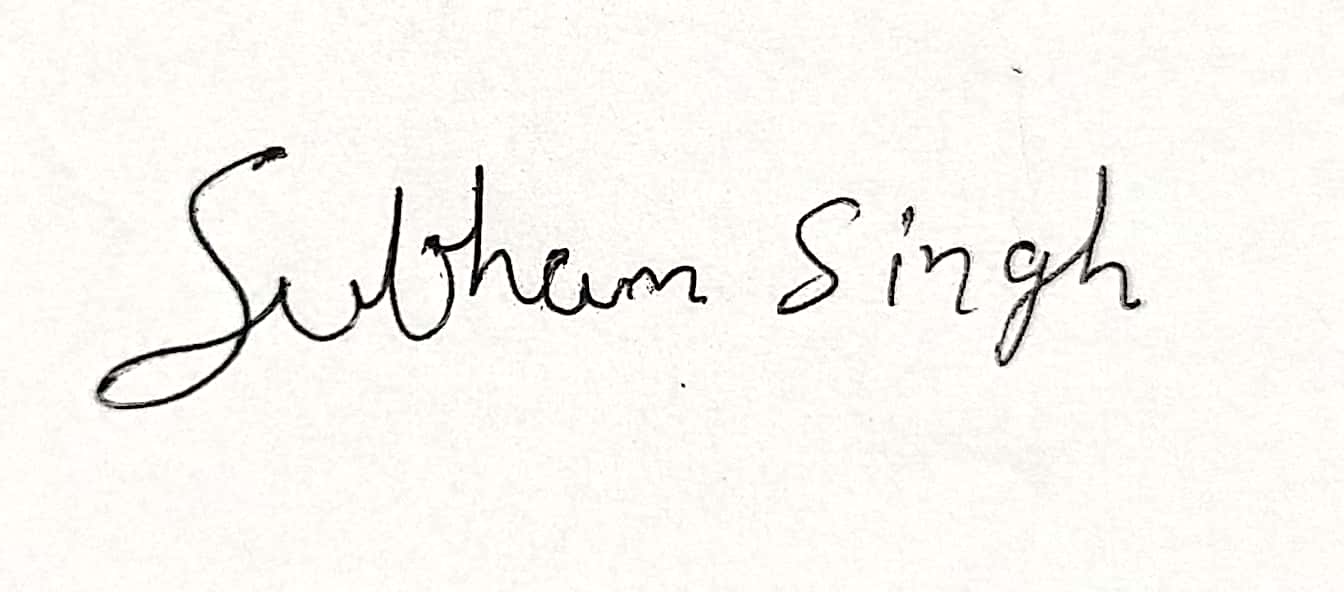 Subham Singh